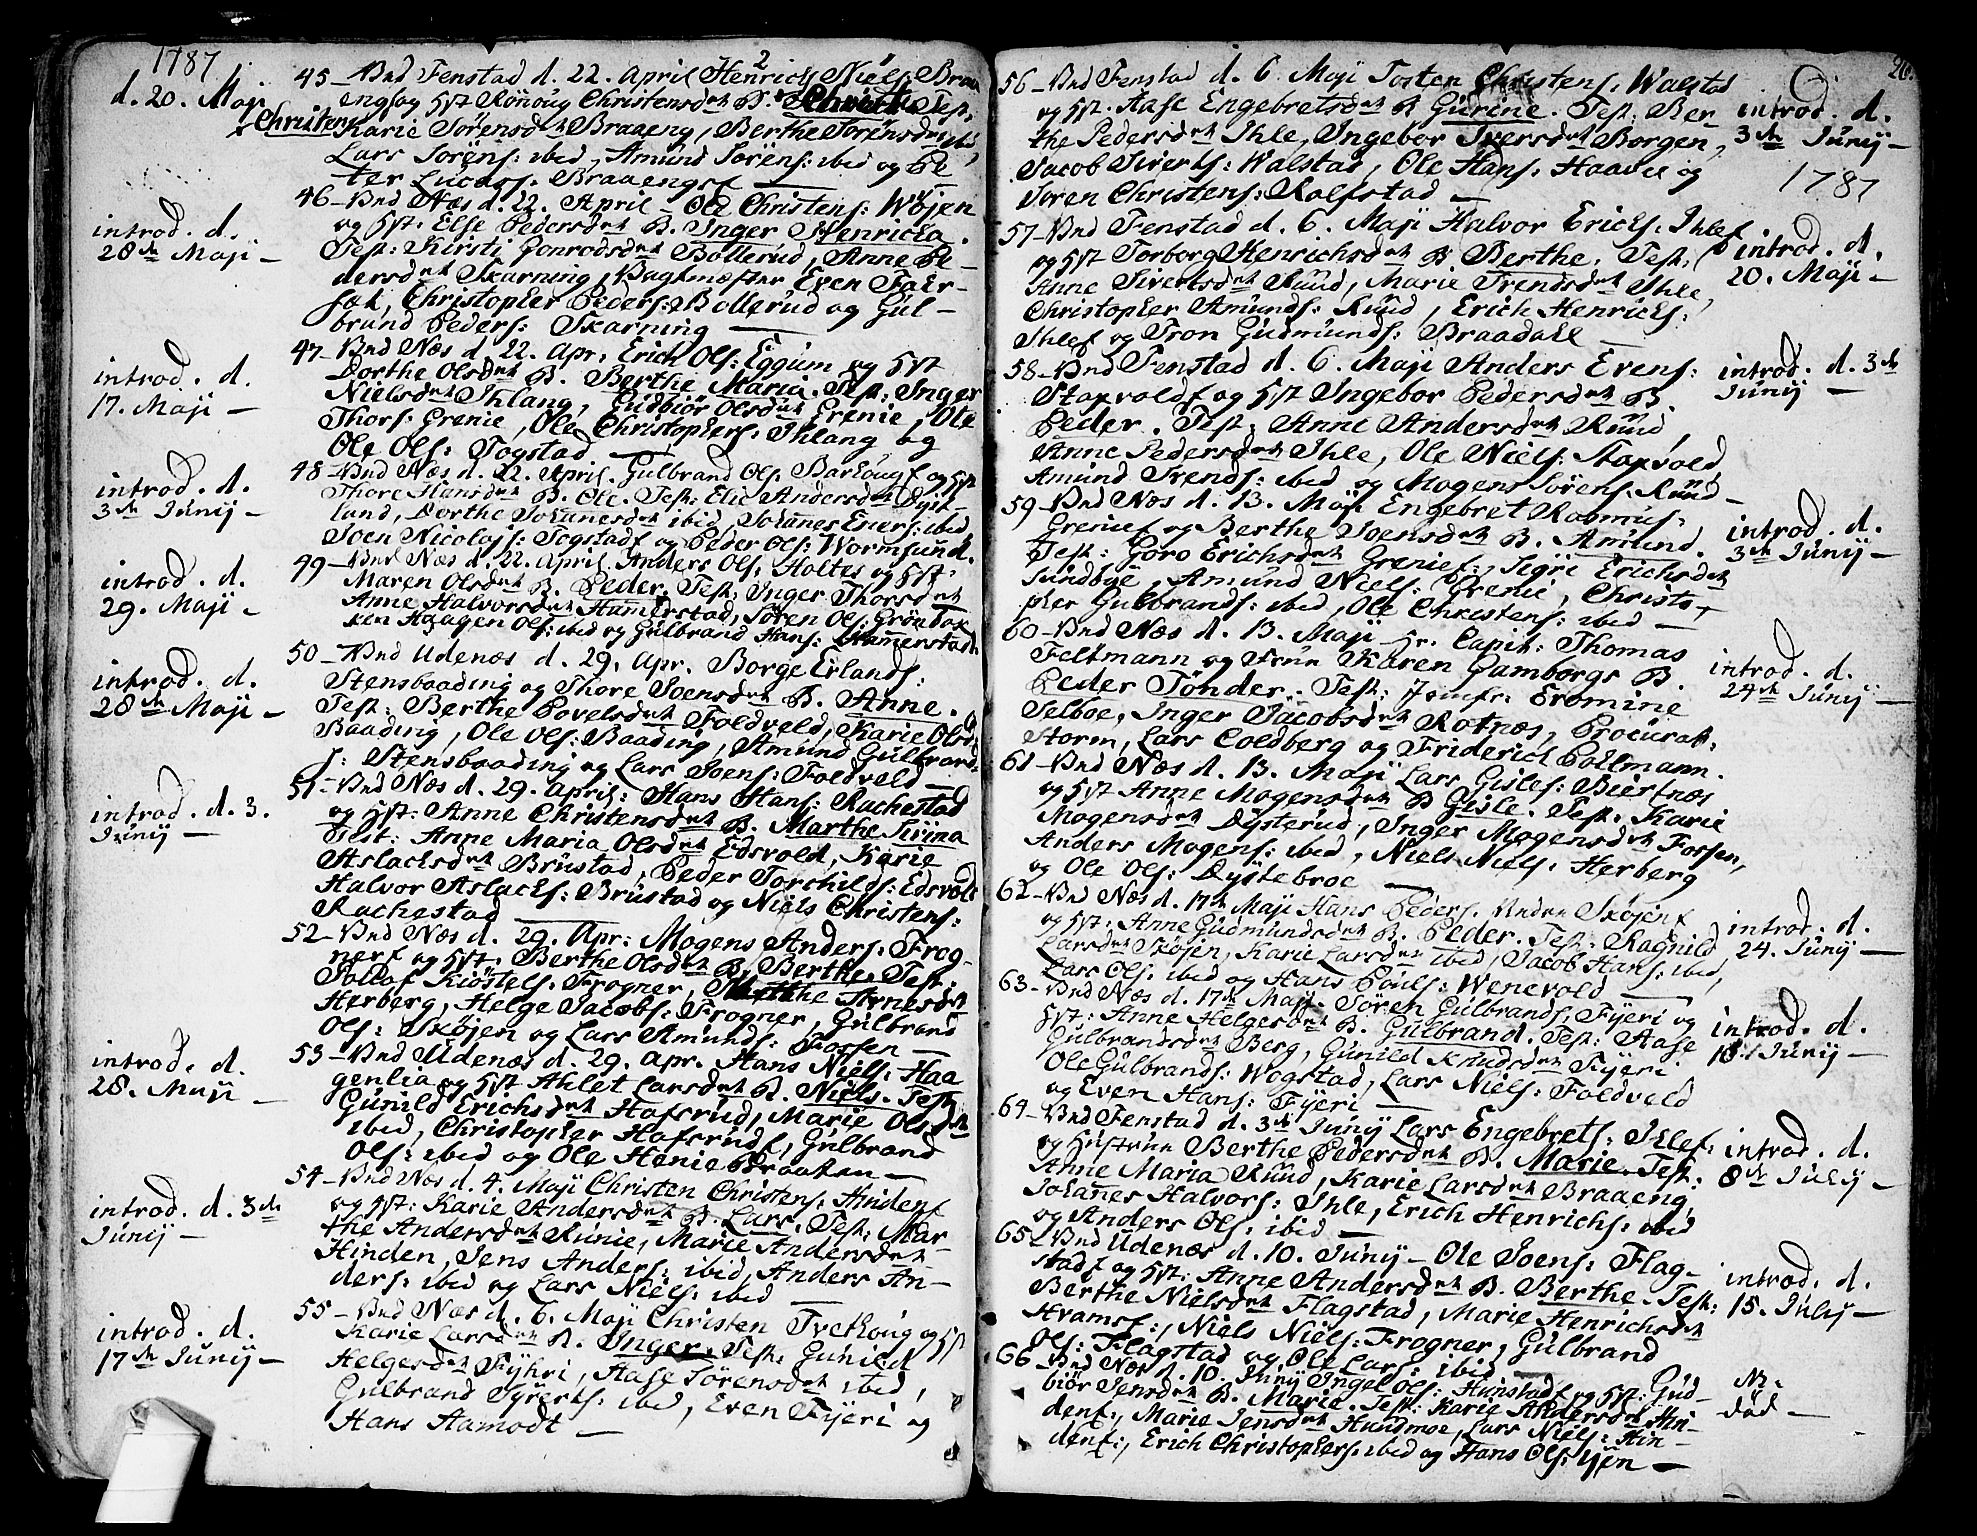 1787
d. 20. Maji
x Christen
45 – Vnd Fenstad d. 22. April Henrich Niels: Braa
og Hst Rønoug Christensdtr B. Test:
Karie Sørensdtr Braaeng, Berthe Sørensdtr ibid,
Lars Sørens: ibid, Amund Sørens: ibid og Pe
ter Lucass: Braaengsf –
introd. d.
28de Maji –
46 – Vnd Næs d. 22. April – Ole Christens: Wøjen
og Hst: Else Pedersdtr B. Inger Henricka.
Test: Kirsti Gonrodsdtr Bøllerud, Anne Pe-
dersdtr Skarning, Vagtmæster Even Faer-
Christopher Peders: Bøllerud og Gul-
brand Peders: Skarning –
introd. d.
17. Maji –
47 – Vnd Næs d. 22. Apr: Erich Ols: Eggum og Hst
Dorthe Olsdtr B. Berthe Maria. Test: Inger
Nielsdtr Ihlang, Gudbiør Olsdtr Grenie, Ole
Thors: Grenie, Ole Christophers: Ihlang og
Ole Ols: Togstad –
introd. d.
3de Junij –
48 – Vnd Næs d. 22. April. Gulbrand Ols: Barkougf og Hst
Thore Hansdtr B. Ole. Test: Elie Andersdtr Dyst-
lund, Dorthe Johanesdtr ibid, Johanes Evers: ibid
Joen Nicolajs: Togstadf og Peder Ols: Wormsund.
introd. d.
29. Maji –
49 – Vnd Næs d. 22. April. Anders Ols: Holtes og Hst:
Maren Olsdtr B. Peder. Test: Inger Thorsdtr
Anne Halvorsdtr Hamerstad, Søren Ols: Grønbak
ken Haagen Ols: ibid og Gulbrand Hans: Hamerstad.
introd. d.
28de Maji –
50 – Vnd Udenæs d. 29. Apr. Borge Erlands:
Stensbaading og Thore Joensdtr B. Anne.
Test: Berthe Povelsdtr Foldveld, Karie Olsd:
Baading, Ole Ols: Baading, Amund Gulbrand-
s: Stensbaading og Lars Joens: Foldveld –
introd. d. 3.
Junij –
51 – Vnd Næs d. 29. April: Hans Hans: Rachestad
og Hst: Anne Christensdtr B. Marthe Sirina
Test: Anne Maria Olsdtr Edsvold, Karie
Aslachsdtr Brustad, Peder Torchilds: Edsvold
Halvor Aslachs: Brustad og Niels Christens:
Rachestad –
52 – Vnd Næs d. 29. Apr: Mogens Anders: Frog-
nerf og Hst: Berthe Olsdtr B. Berthe. Test:
Tollof Kiøstels: Frogner, Marthe Arnesdtr
Herberg, Helge Jacobs: Frogner, Gulbrand
Ols: Skøjen og Lars Amunds: Fossen –
introd. d.
28. Maji –
53 – Vnd Udenæs d. 29. Apr. Hans Niels: Haa
genlia og Hst Ahlet Larsdtr B. Niels. Test:
Gunild Erichsdtr Hafsrud, Marie Olsdtr
ibid, Christopher Hafsrudf, Gulbrand
Ols: ibid og Ole Henie Braaten –
introd. d. 3de
Junij –
54 – Vnd Næs d. 4. Maji Christen Christens: Hindenf
og Hst: Karie Andersdtr B. Lars. Test: Mar-
the Andersdtr Runie, Marie Andersdtr
Hinden, Jens Anders: ibid, Anders An-
ders: ibid og Lars Niels: ibid
introd. d.
17de Junij –
55 – Vnd Næs d. 6. Maji Christen Tvetoug og Hst
Karie Larsdtr B. Inger. Test: Gunild
Helgesdtr Fyhri, Aase Sørensdtr ibid,
Gulbrand Syverts: ibid, Even Fyeri og
Hans Aamodt –
26.
56 – Vnd Fenstad d. 6. Maji Tosten Christens: Walstad
og Hst: Aase Engebretsdtr B Gurine. Test: Ber
the Pedersdtr Ihle, Ingebor Iversdtr Borgen,
Jacob Siverts: Walstad, Ole Hans: Haavie og
Søren Christens: Rolfstad –
introd. d.
3de Junij –
1787
57 – Vnd Fenstad d. 6. Maji Halvor Erichs: Ihlef
og Hst Torborg Henrichsdtr B Berthe. Test:
Anne Sivertsdtr Ruud, Marie Trendsdtr Ihle,
Christopher Amunds: Ruud, Erich Henrichs:
Ihlef og Tron Gudmunds: Braadahl –
introd. d.
20. Maji –
58 – Vnd Fenstad d. 6. Maji Anders Evens:
Stoxvoldf og Hst Ingebor Pedersdtr B.
Peder. Test: Anne Andersdtr Ruud,
Anne Pedersdtr Ihle, Ole Niels: Stoxvold,
Amund Trends: ibid og Mogens Sørens: Ruud –
introd. d. 3de
Junij –
59 – Vnd Næs d. 13. Maji Engebret Rasmus:
Grenief og Berthe Joensdtr B. Amund.
Test: Goro Erichsdtr Grenief:, Sigri Erichsdtr
Sundbye, Amund Niels: Grenie, Christo-
pher Gulbrands: ibid, Ole Christens: ibid –
introd. d.
3de Junij –
60 – Vnd Næs d. 13. Maji – Hr. Capit: Thomas
Feltmann og Frue Karen Gamborgs B.
Peder Tønder. Test: Jomfr: Eromine
Selboe, Inger Jacobsdtr Rotnæs, Procurat:
Storm, Lars Coldberg og Friderich Poltmann.
introd. d.
24de Junij –
61 – Vnd Næs d. 13. Maji Lars Gisles: Biertnæs
og Hst Anne Mogensdtr B Gisle. Test: Karie
Mogensdtr Dysterud, Inger Mogensdtr Fossen,
Anders Mogens: ibid, Niels Niels: Herberg
og Ole Ols: Dystebroe –
62 – Vnd Næs d. 17de Maji Hans Peders: Skøjenf
og Hst: Anne Gudmundsdtr B. Peder. Test: Ragnild
Larsdtr Skøjen, Karie Larsdtr ibid, Jacob Hans: ibid,
Lars Ols: ibid og Hans Pouls: Wenevold –
introd. d.
24. Junij –
63 – Vnd Næs d. 17de Maji. Søren Gulbrands: Fyeri og
Hst: Anne Helgesdtr B. Gulbrand. Test: Aase
Gulbrandsdtr Berg, Gunild Knudsdtr Fyeri
Ole Gulbrands: Wogstad, Lars Niels: Foldveld
og Even Hans: Fyeri –
introd. d.
Junij –
64 – Vnd Fenstad d. 3de Junij Lars Engebrets: Ihlef:
og Hustrue Berthe Pedersdtr B. Marie. Test:
Anne Maria Ruud, Karie Larsdtr Braaeng,
Johanes Halvors: Ihle, Erich Henrichs: ibid
og Anders Ols: ibid –
introd. d.
8de Julij –
65 – Vnd Udenæs d. 10. Junij – Ole Joens: Flag-
stadf og Hst: Anne Andersdtr B. Berthe. Test:
Berthe Nielsdtr Flagstad, Marie Henrichsdtr
Hramsf:, Niels Niels: Frogner, Gulbrand
Ols: Flagstad og Ole Lars: ibid –
introd. d.
15. Julij –
66 – Vnd Næs d. 10. Junij Ingel Ols: Hunstadf og Hst: Gud
biør Jensdtr B. Marie. Test: Karie Andersdtr Hin
denf:, Marie Jensdtr Hundmoe, Lars Niels: Hin-
denf:, Erich Christophers: ibid og Hans Ols: Ijøn –
død –